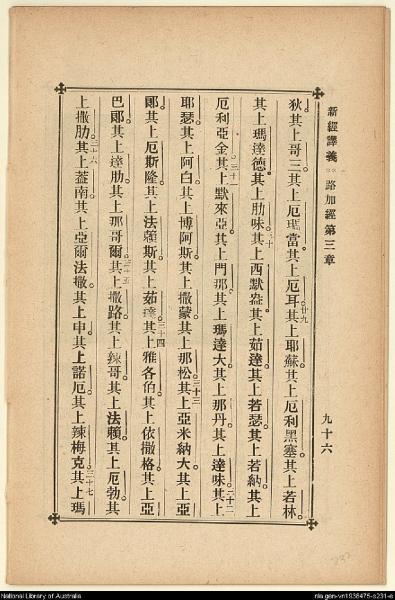 新經譯義 路加經第三章 九十六
狄。其上哥三。其上厄瑪當。其上厄耳。廿九其上耶蘇。其上厄利黑塞。其上若林。
其上瑪達德。其上肋味。三十其上西默盎。其上茹達。其上若瑟。其上若納。其上
厄利亞金。三十一其上默來亞。其上門那。其上瑪達大。其上那丹。其上達味。三十二其上
耶瑟。其上阿白。其上博阿斯。其上撒蒙。其上那松。三十三其上亞米納大。其上亞
郎。其上厄斯隆。其上法賴斯。其上茹達。三十四其上雅各伯。其上依撒格。其上亞
巴郎。其上達肋。其上那哥爾。三十五其上撒路。其上辣哥。其上法賴。其上厄勃。其
上撒肋。三十六其上蓋南。其上亞爾法撒。其上申。其上諾厄。其上辣梅克。三十七其上瑪
National Library of Australia
nla.gen-vn1936475-s231-e